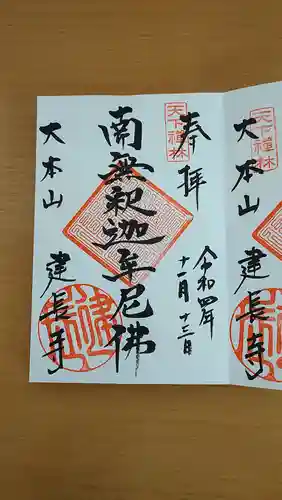 奉拝
天下禅林
令和四年
十一月十三日
南無釈迦牟尼佛
大本山
建長寺
天下禅林
大本山
建長寺